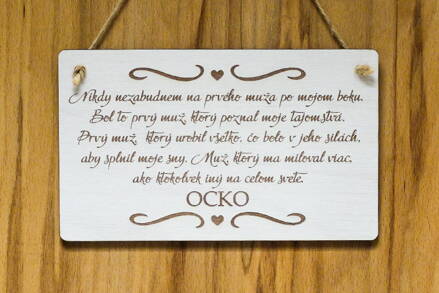 Nikdy nezabudnem na prvého muža po mojom boku.
Bol to prvý muž, ktorý poznal moje tajomstvá.
Prvý muž, ktorý urobil všetko, čo bolo v jeho silách,
aby splnil moje sny. Muž, ktorý ma miloval viac,
ako ktokoľvek iný na celom svete.
OCKO